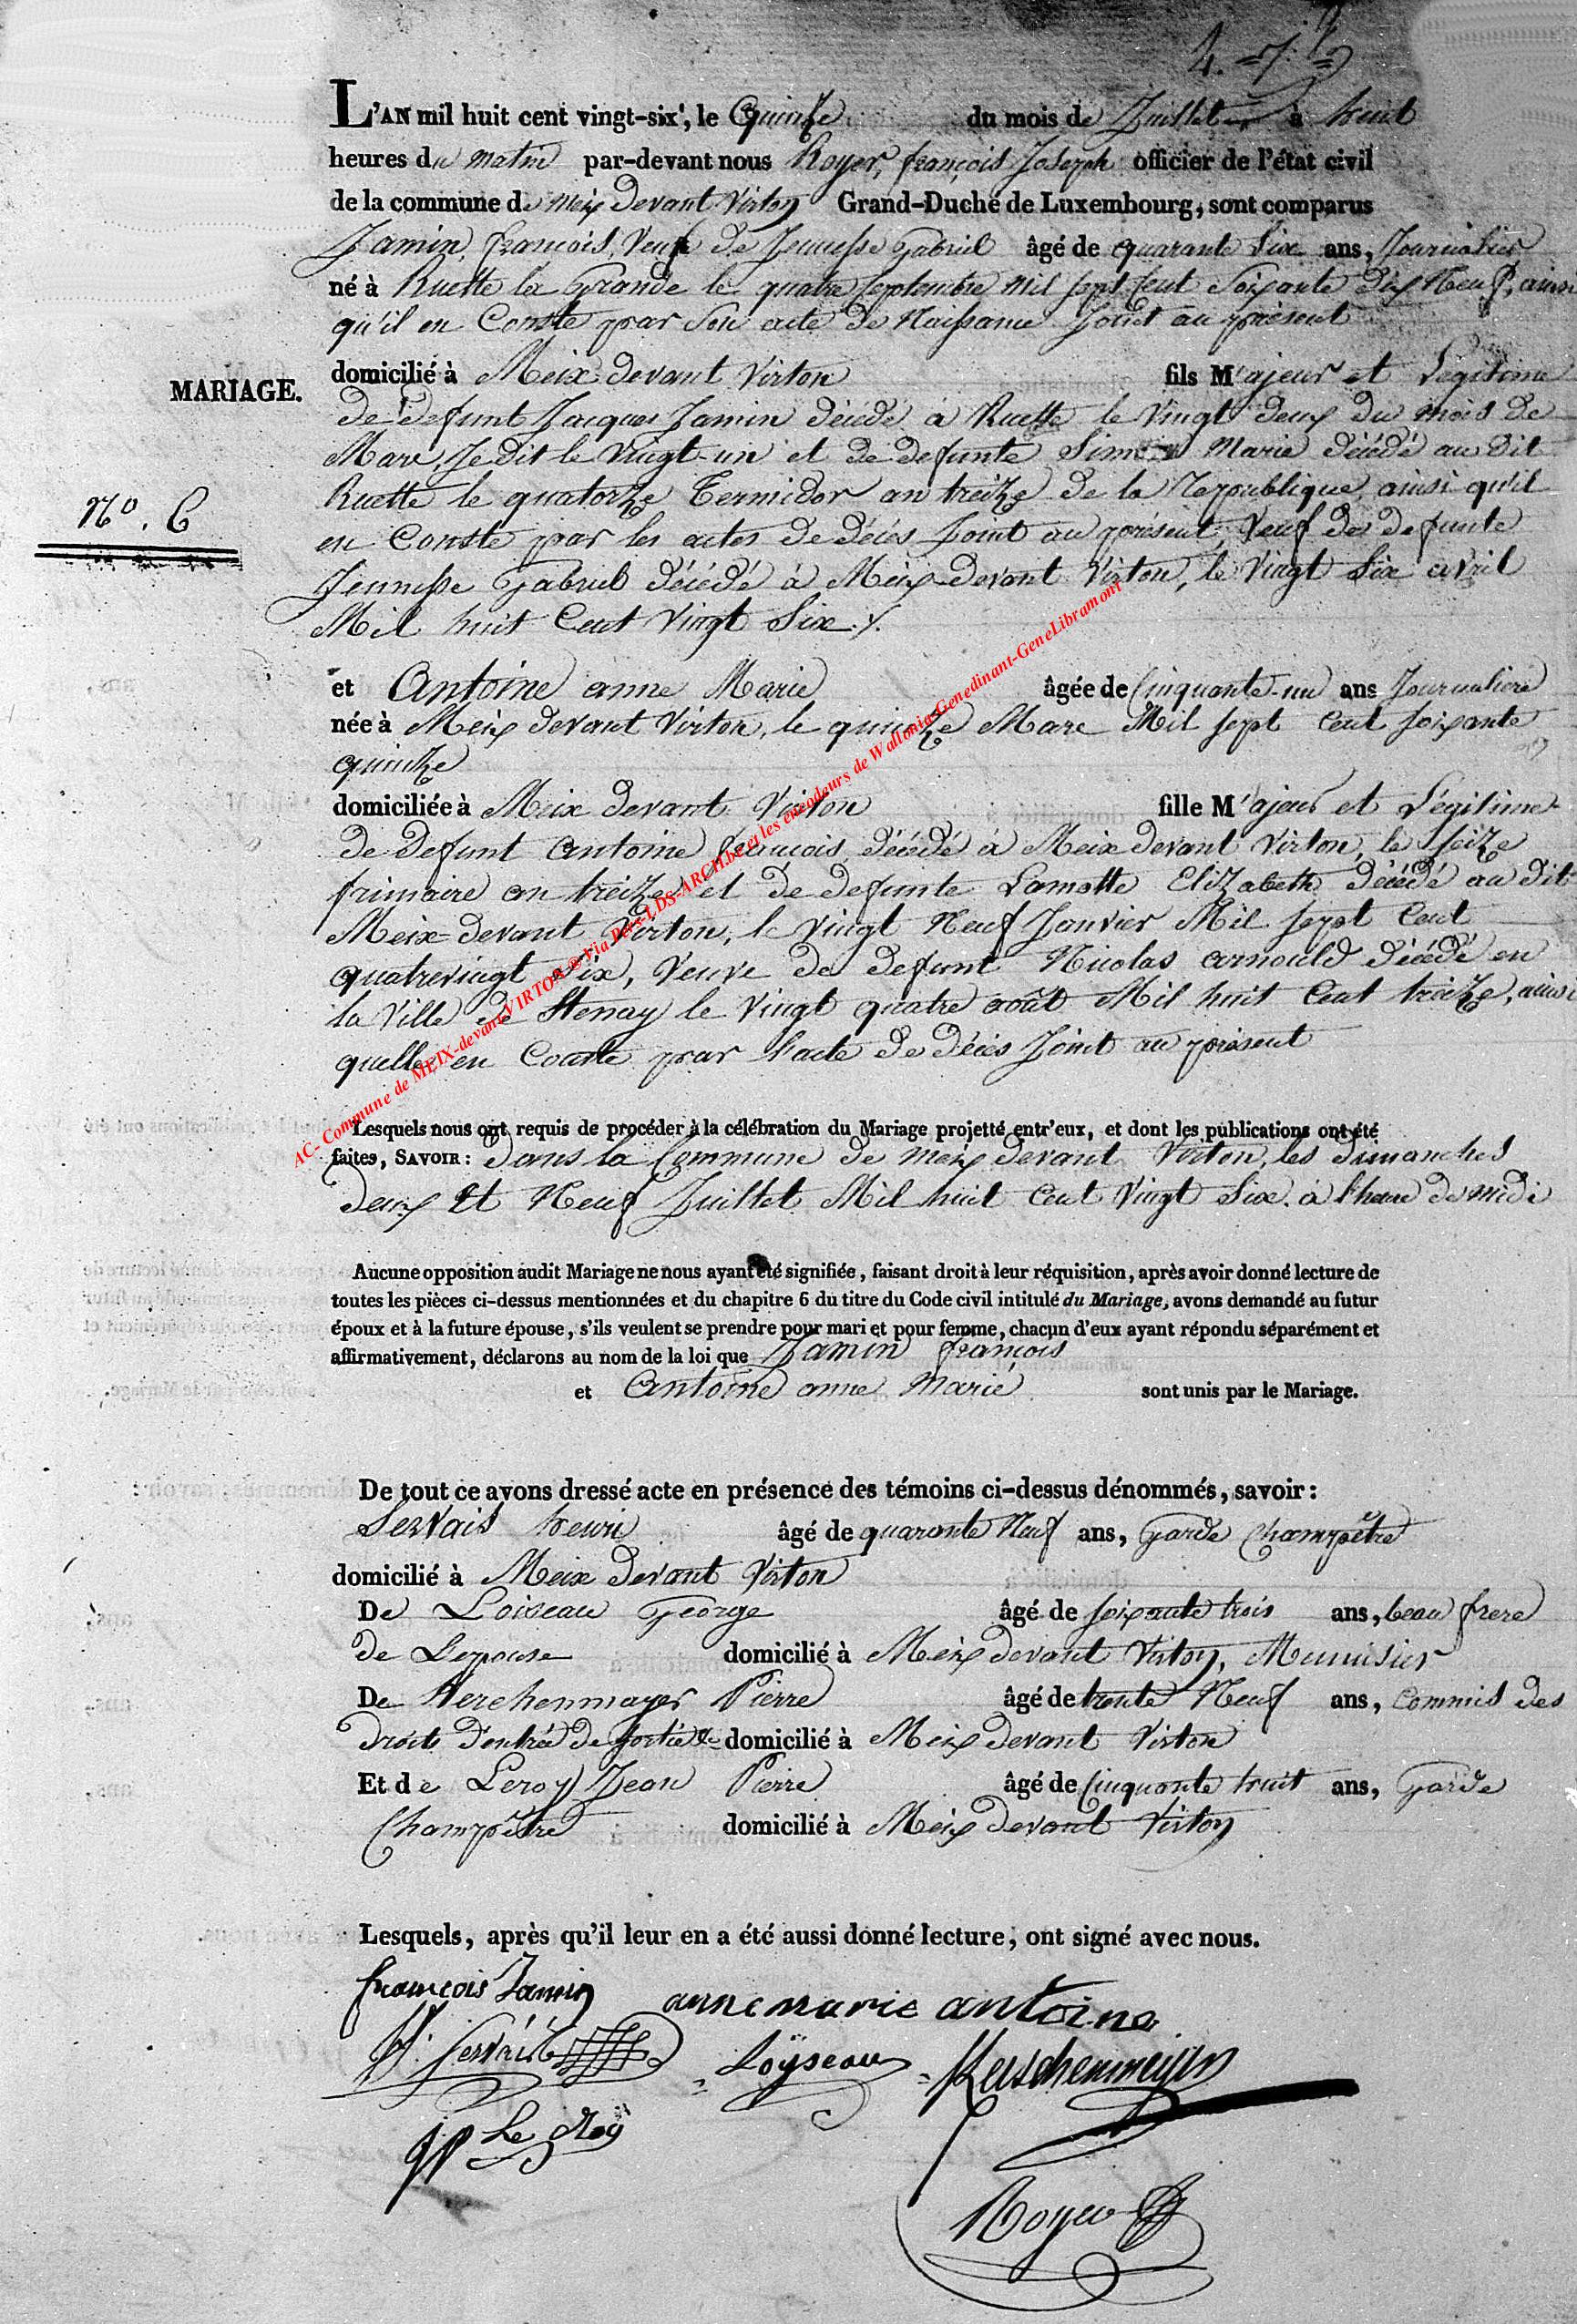 L'AN mil huit cent vingt-six, le Quinze du mois de Juillet à huit
heures du matin par-devant nous Royer, françois Joseph officier de l'état civil
de la commune de meix Devant Virton Grand-Duché de Luxembourg, sont comparus
Jamin, françois, Veuf de Jennesse Gabriel âgé de quarante Six ans, Journalier
né à Ruette la Grande le quatre septembre mil sept Cent Soixante Dix Neuf, ainsi
qu'il en Conste par Son acte de Naissance Joint au présent
MARIAGE.
domicilié à Meix devant Virton fils Majeur et Légitime
de Defunt Jacques Jamin décédé à Ruette le Vingt deux du mois de
Mars, Je dit le Vingt-un et de defunte Marie décédé au dit
Ruette le quatorze Termidor an treize de la Republique, ainsi qu'il
No. 6
en Conste par les actes de décès Joint au présent, Veuf de defunte
Jennesse Gabriel décédé à Meix-devant Virton, le Vingt Six avril
Mil huit Cent Vingt Six ./.
et Antoine anne Marie âgée de Cinquante-un ans Journaliere
née à Meix devant Virton, le quinze Mars Mil sept Cent soixante
quinze
domiciliée à Meix devant Virton fille Majeur et Légitime
de Defunt Antoine françois, décédé à Meix devant Virton, le seize
frimaire an treize et de defunte Lamotte Elizabeth décédé au dit
Meix-devant Virton, le Vingt Neuf Janvier Mil sept Cent
quatrevingt Six, Veuve de defunt Nicolas arnould décédé en
la Ville de Stenay le Vingt quatre août Mil huit Cent treize, ainsi
quelle en Conste par l'acte de décès Joint au présent
AC- Commune de MEIX-devant-VIRTON © Via Deis-LDS-ARCH.be et les encodeurs de Wallonia-Genedinant-GeneLibramont
Lesquels nous ont requis de procéder à la célébration du Mariage projetté entr'eux, et dont les publications ont été
faites, SAVOIR: Dans la Commune de meix devant Virton, les dimanches
deux Et Neuf Juillet Mil huit Cent Vingt Six. à l'heure de midi
Aucune opposition audit Mariage ne nous ayant été signifiée, faisant droit à leur réquisition, après avoir donné lecture de
toutes les pièces ci-dessus mentionnées et du chapitre 6 du titre du Code civil intitulé du Mariage, avons demandé au futur
époux et à la future épouse, s'ils veulent se prendre pour mari et pour femme, chacun d'eux ayant répondu séparément et
affirmativement, déclarons au nom de la loi que Jamin françois
et Antoine anne Marie sont unis par le Mariage.
De tout ce avons dressé acte en présence des témoins ci-dessus dénommés, savoir:
Servais henri âgé de quarante Neuf ans, Garde Champêtre
domicilié à Meix Devant Virton
De Loiseau George âgé de soixante trois ans, beau frere
de Lepouse domicilié à Meix devant Virton, Menuisier
De Kerchenmayer Pierre âgé de trente Neuf ans, Commis des
Droits d'entrée De Sortie &c domicilié à Meix devant Virton
Et de Leroy Jean Pierre âgé de Cinquante huit ans, Garde
Champêtre domicilié à Meix devant Virton
Lesquels, après qu'il leur en a été aussi donné lecture, ont signé avec nous.
françois Jamin anne marie antoine
H. Servais Loÿseau Kerschenmeyer
JP Le Roÿ
Royer